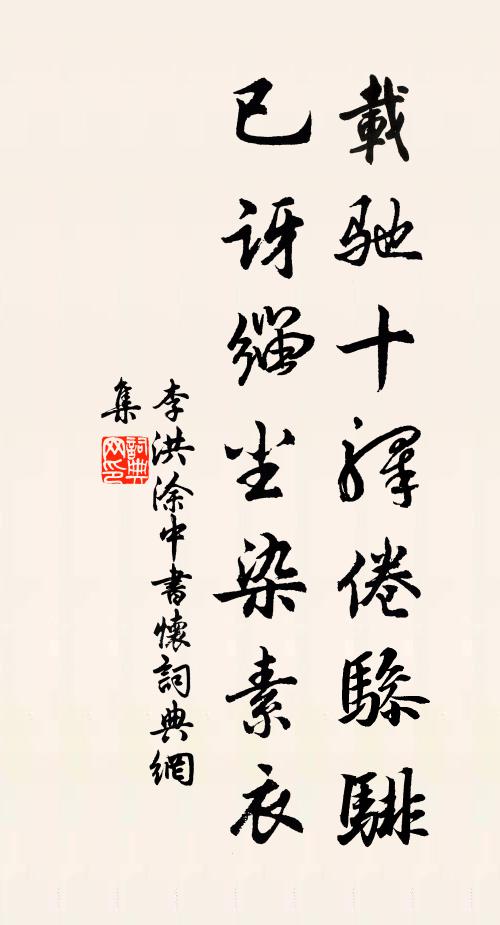 載馳十驛倦驂騑
已訝緇塵染素衣
李洪涂中書懷詞典網
集
詞典
网印